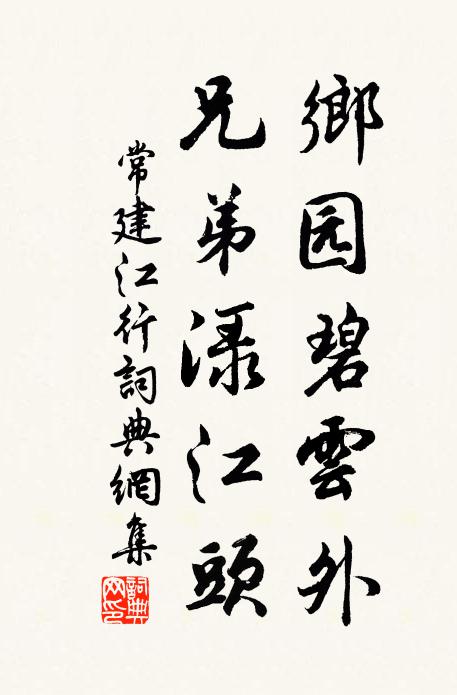 鄉园碧雲外
兄弟渌江頭
常建江行詞典網集
詞典網印